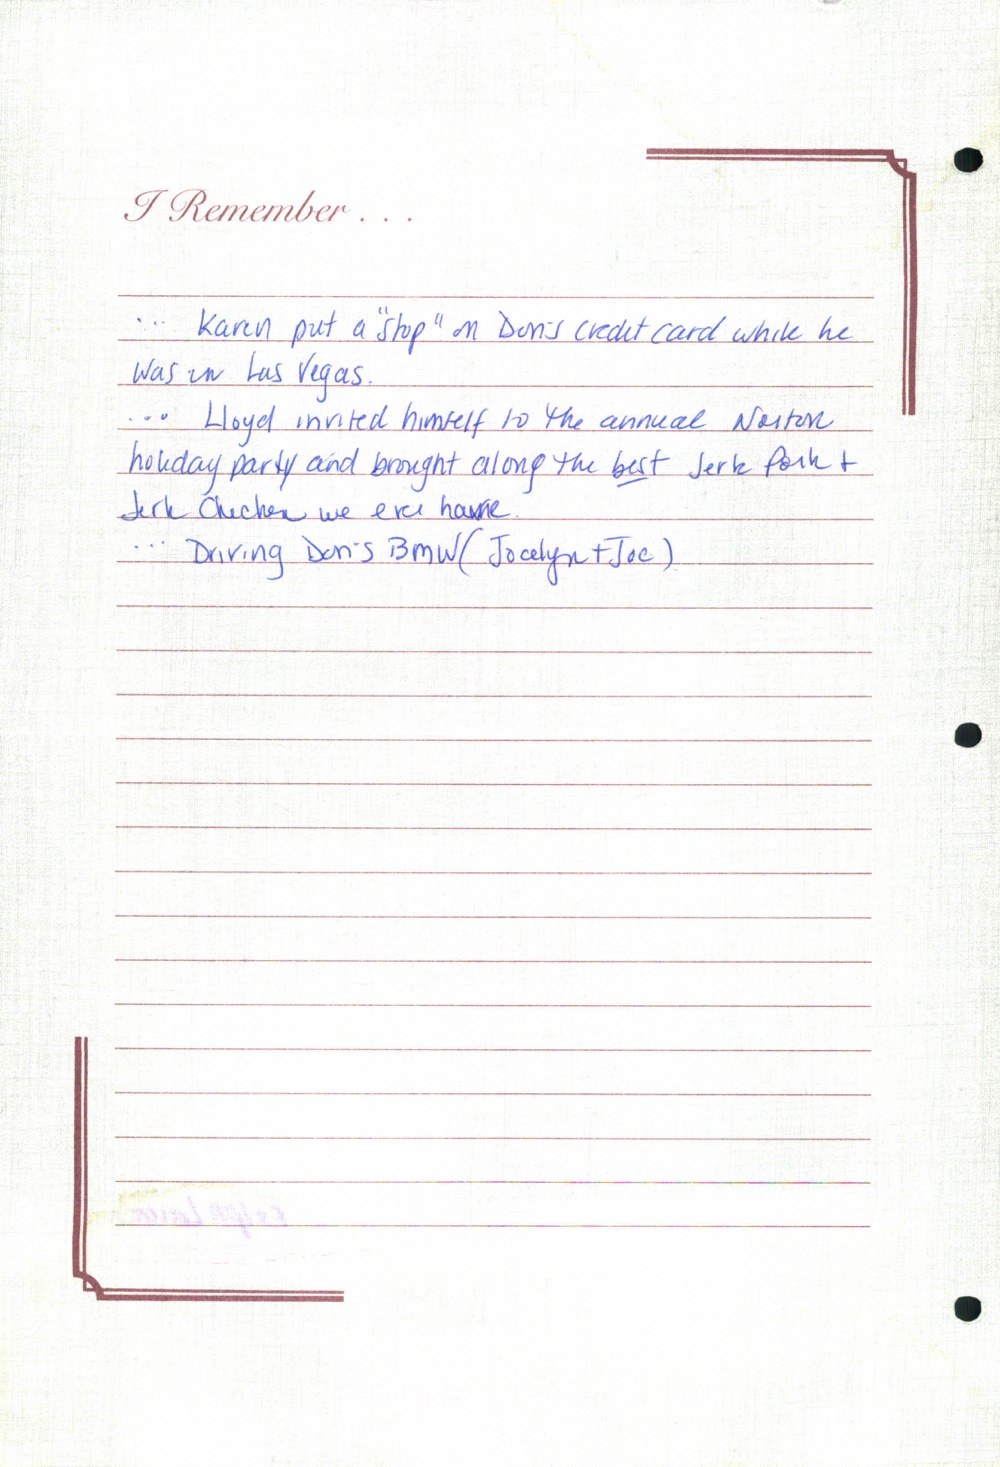 I Remember . . .
... Karen put a "stop" on Don's credit card while he
was in Las Vegas.
... Lloyd invited himself to the annual Norton
holiday party and brought along the best Jerk Pork +
Jerk Chicken we ever have.
... Driving Don's BMW (Jocelyn + Joe)